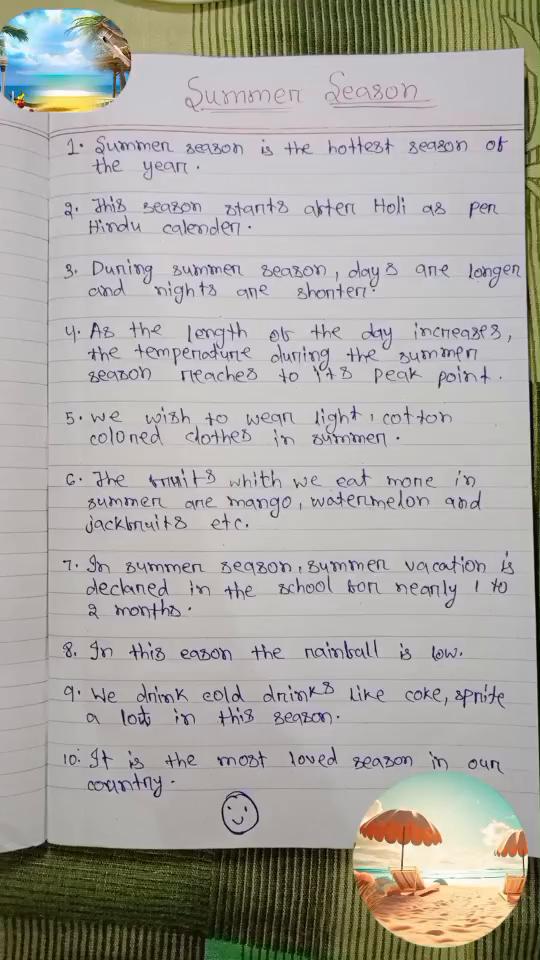 Summer Season
1. Summer season is the hottest season of
the year.
2. This season starts after Holi as per
Hindu calender.
3. During summer season, days are longer
and nights are shorter.
4. As the length of the day increases,
the temperature during the summer
season reaches to its peak point.
5. we wish to wear light, cotton
colored clothes in summer.
6. The fruits whith we eat more in
summer are mango, watermelon and
jackfruits etc.
7. In summer season, summer vacation is
declared in the school for nearly 1 to
2 months.
8. In this eason the rainfall is low.
9. We drink cold drinks like coke, sprite
a lot in this season.
10. It is the most loved season in our
country.